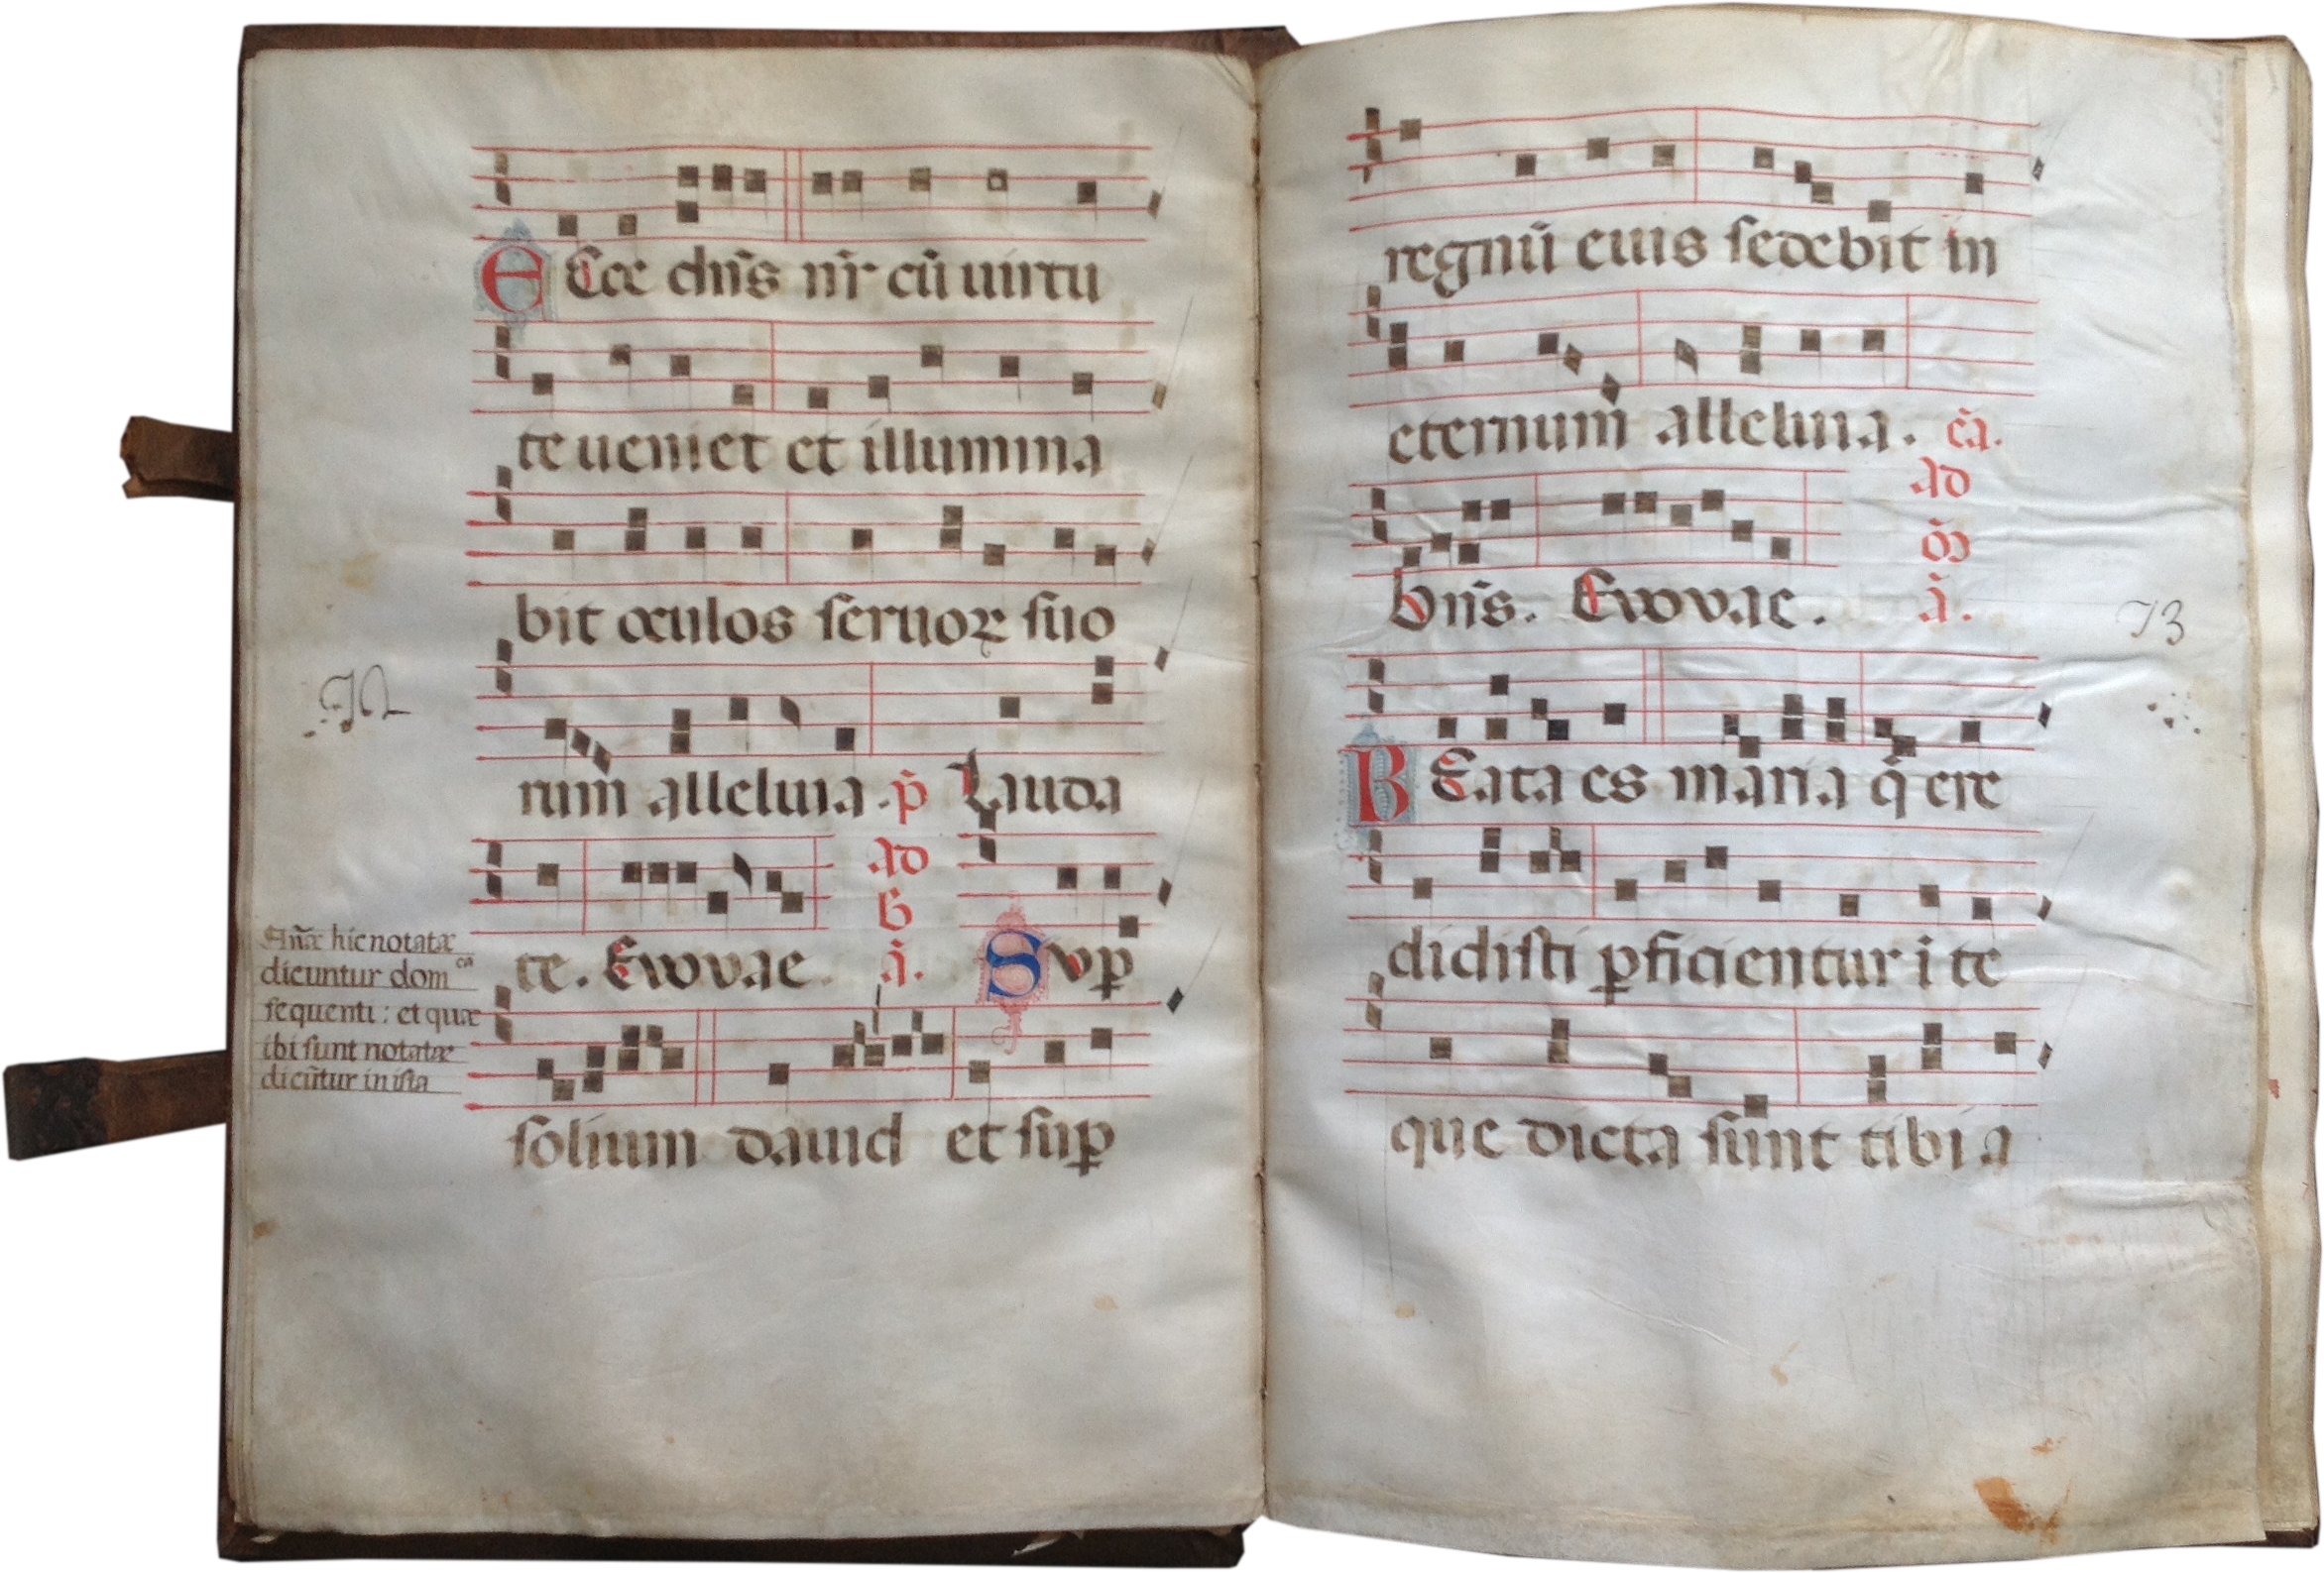 E Ecce dn̄s nr̄ cū uirtu
te ueniet et illumina
bit oculos seruoꝝ suo
72
rum alleluia. p̄ Lauda
Ad
B
Añæ hic notatæ
dicuntur dom^ca
sequenti: et quæ
ibi sunt notatæ
dicūtur in ista
te. Evovae. ā. Sup̱
solium dauid et sup̱
regnū eius sedebit in
eternum alleluia. c̄a.
Ad
bn̄s. Evovae. ā.
73
B Eata es maria q̄ cre
didisti ꝑficientur ī te
que dicta sunt tibi a